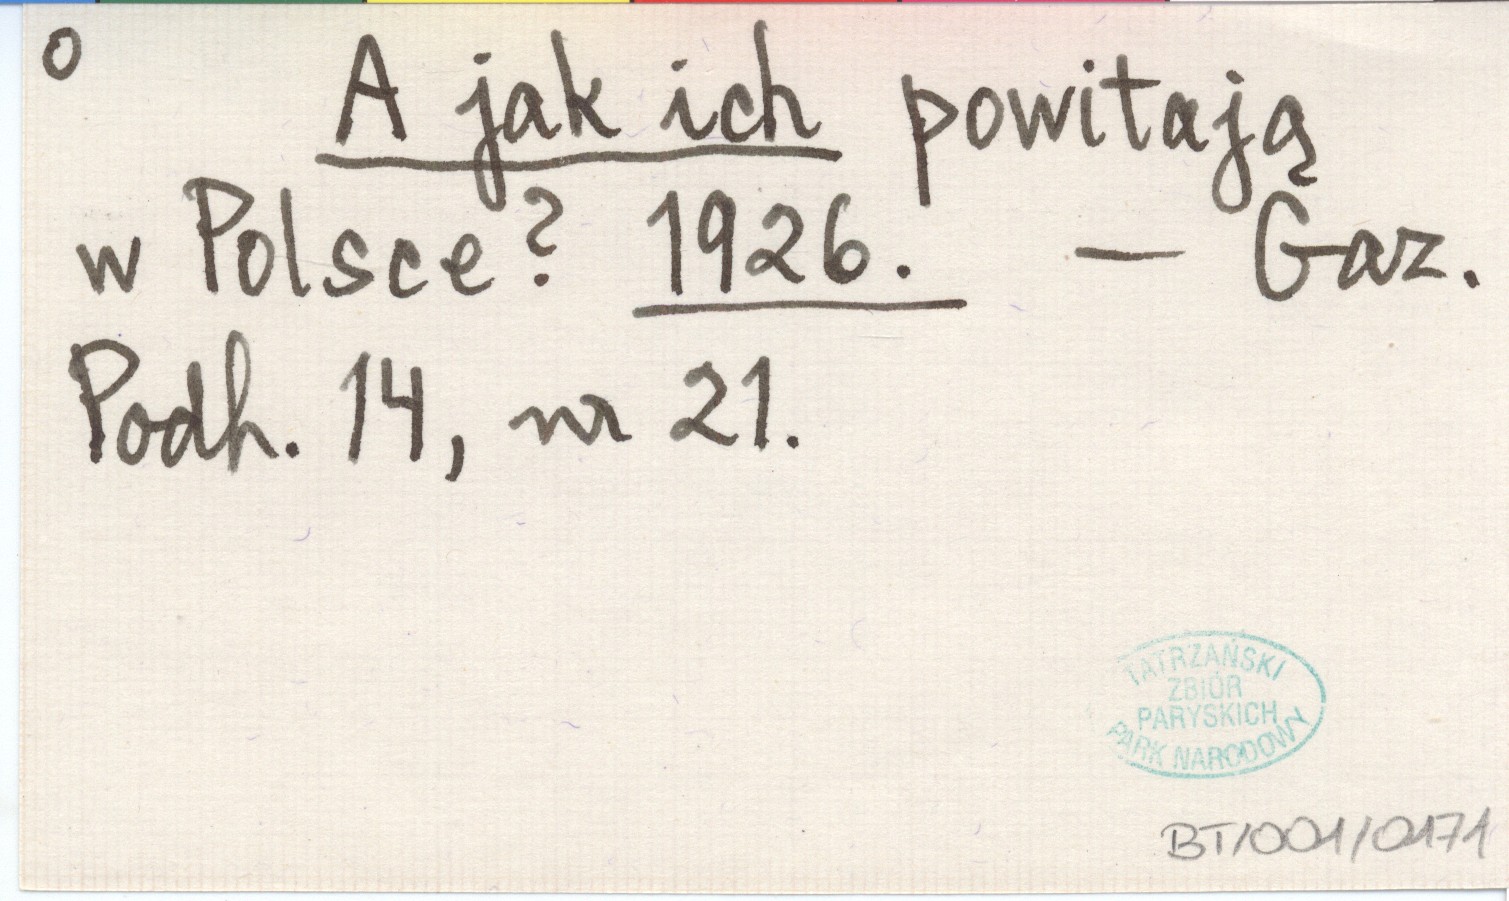 o
A jak ich powitają
w Polsce? 1926. — Gaz.
Podh. 14, nr 21.
TATRZAŃSKI
ZBIÓR
PARYSKICH
PARK NARODOWY
BT/001/0171